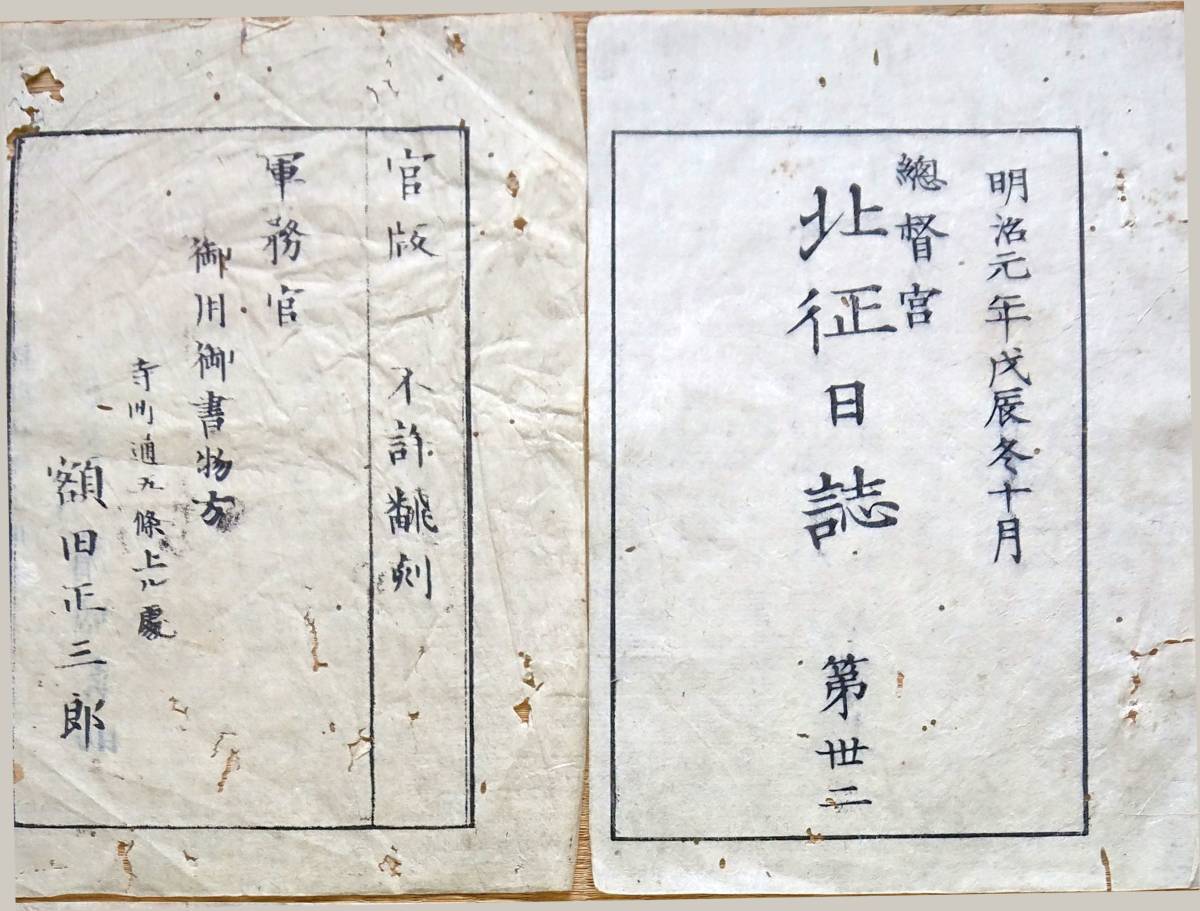 明治元年戊辰冬十月
總督宮
北征日誌 第卅二
官版 不許飜刻
軍務官
御用御書物方
寺町通九條上ル處
額田正三郎